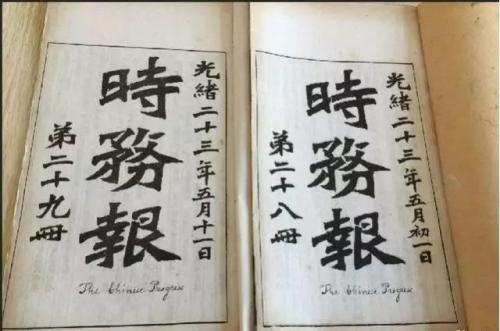 光緒二十三年五月十一日
時務報
第二十九冊
The Chinese Progress
光緒二十三年五月初一日
時務報
第二十八冊
The Chinese Progress